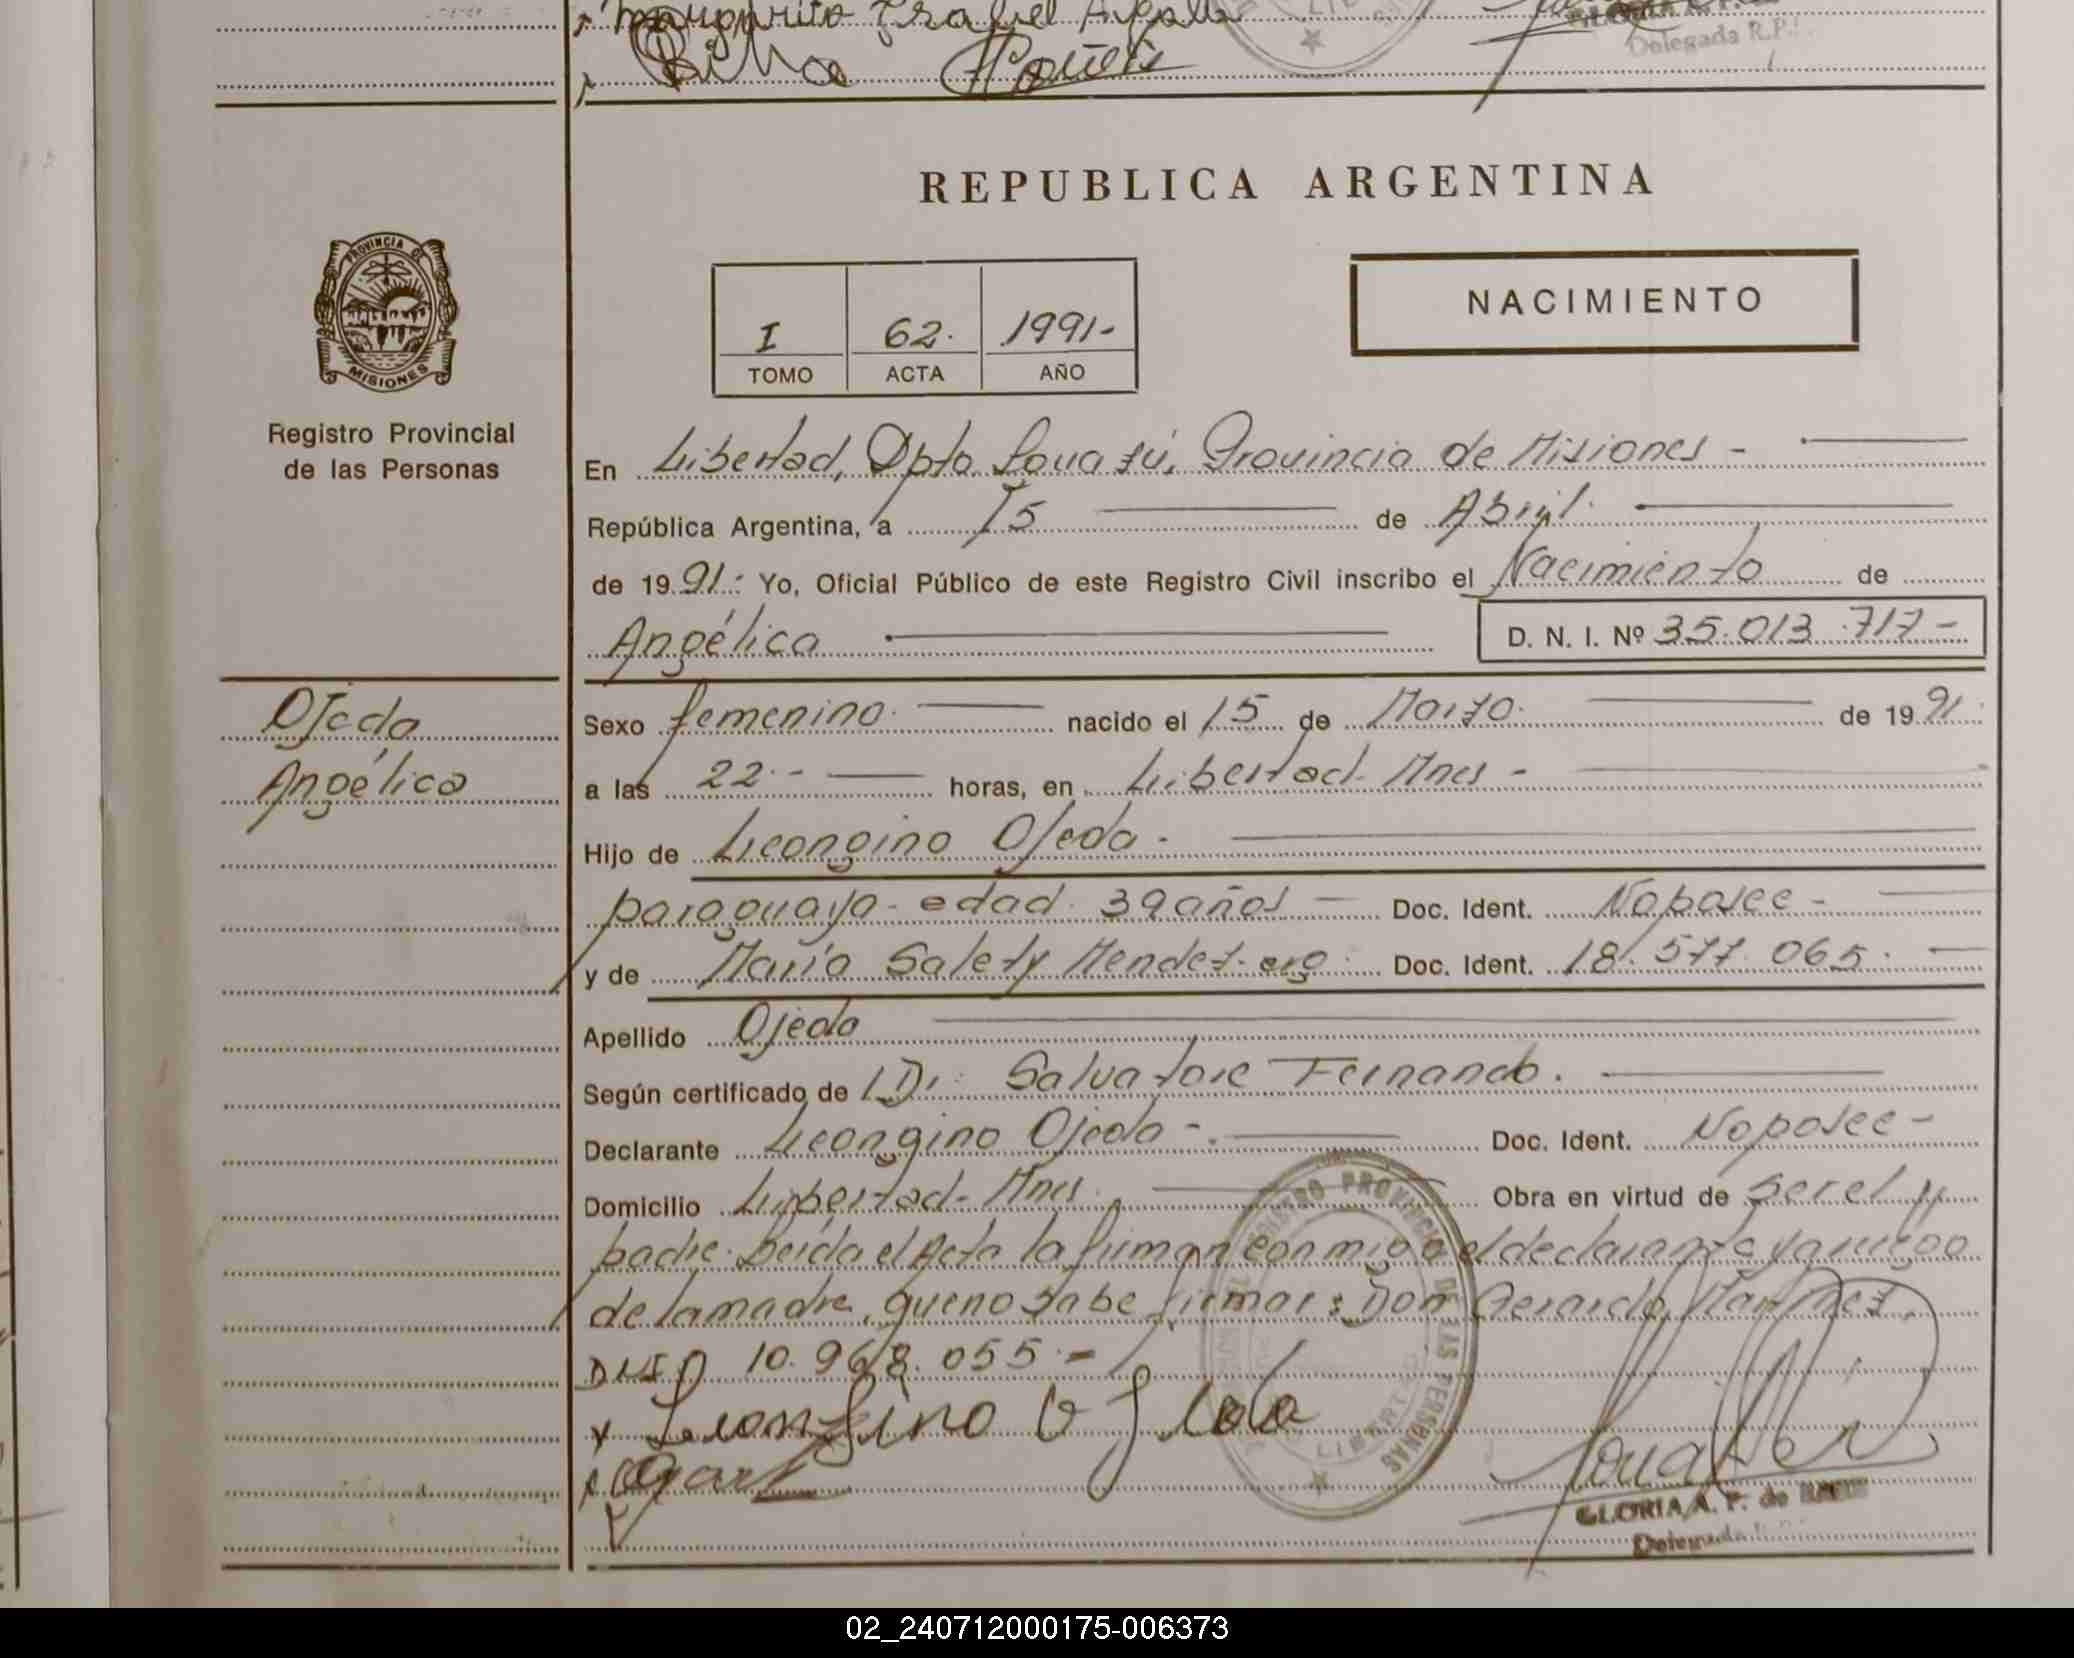 Margarito
Delegada R.P.
REPUBLICA ARGENTINA
PROVINCIA DE
MISIONES
Registro Provincial
de las Personas
NACIMIENTO
I 62. 1991-
TOMO ACTA AÑO
En Libertad, Dpto Iguazú, Provincia de Misiones -
República Argentina, a 15 de Abril.
de 1991.- Yo, Oficial Público de este Registro Civil inscribo el Nacimiento de
Angélica D. N. I. Nº 35.013.717-
Ojeda
Angélica
Sexo femenino. nacido el 15 de Marzo. de 1991.
a las 22.- horas, en Libertad. Mnes -
Hijo de Leongino Ojeda -
paraguaya - edad 39 años - Doc. Ident. No posee -
y de María Salety Mendez. arg. Doc. Ident. 18.577.065.
Apellido Ojeda
Según certificado de Dr. Salvatore Fernando.
Declarante Leongino Ojeda -. Doc. Ident. No posee -
Domicilio Libertad - Mnes. Obra en virtud de ser el
padre. Leída el Acta la firman conmigo el declarante y a ruego
de la madre, que no sabe firmar: Don Gerardo Martinez,
DNI 10.968.055.-
x Leongino Ojeda
REGISTRO PROVINCIAL DE LAS PERSONAS
LIBERTAD
GLORIA A. P. de
Delegada
02_240712000175-006373